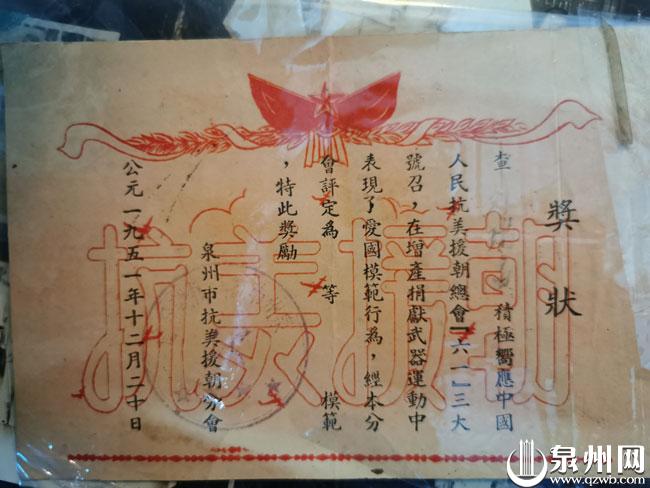 獎狀
查 積極嚮應中國
人民抗美援朝總會「六一」三大
號召，在增產捐獻武器運動中
表現了愛國模範行為，經本分
會評定為 等 模範
，特此獎勵
泉州市抗美援朝分會
公元一九五一年十二月二十日
抗美援朝
泉州网
www.qzwb.com